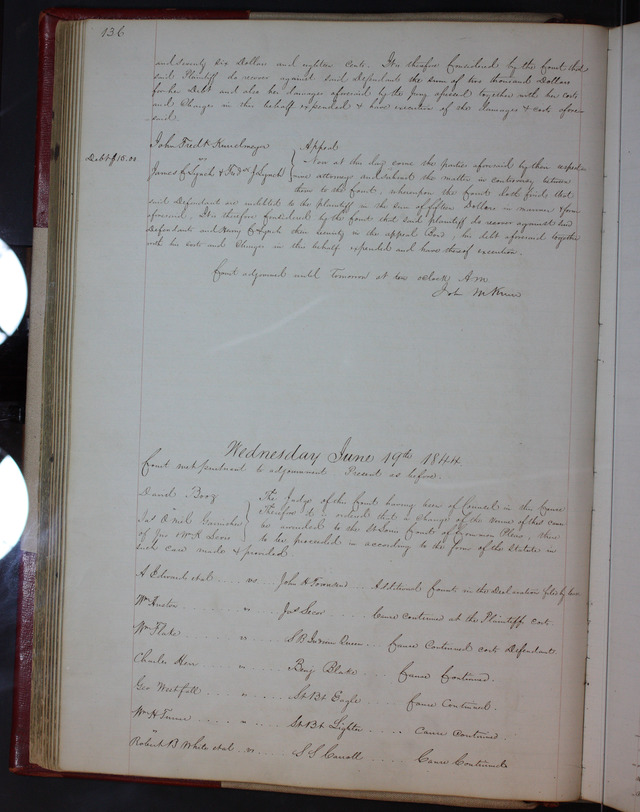 136
and seventy six Dollars and eighteen cents. It is therefore Considered by the Court that
said Plaintiff do recover against said Defendants the sum of two thousand Dollars
for her Debt and also her damages aforesaid by the Jury assessed together with her costs
and Charges in this behalf expended & have execution of the damages & costs afore
said.
John Fredk
Appeal
Debt $15.00
vs
James C Lynch & Fredk J Lynch
Now at this day come the parties aforesaid by their respec
tive attorneys and submit the matter in controversy between
them to the Court, whereupon the Court doth find that
said Defendants are indebted to the plaintiff in the sum of fifteen Dollars in manner & form
aforesaid. It is therefore Considered by the Court that said plaintiff do recover against said
Defendants and Henry C Lynch their security in the appeal Bond, his debt aforesaid together
with his costs and Charges in this behalf expended and have thereof execution.
Court adjourned until Tomorrow at ten oclock A.M.
John M Krum
Wednesday June 19th 1844
Court met pursuant to adjournment Present as before.
Daniel
vs
Jas O Neil Garnishee
of Jno
The Judge of the Court having been of Council in this Cause
Therefore it is ordered that a Change of the venue of this cause
be awarded to the St Louis Court of Common Pleas, there
to be proceeded in according to the form of the Statute in
such case made & provided
A Edwards et al .... vs. John R Townsend .. Additional Counts in the Declaration filed by leave
Wm Huston .... " Jas .... Cause continued at the Plaintiffs cost.
Wm Fluke .... vs S B Indian Queen .. Cause Continued cost Defendant.
Charles Kerr .. " Benj Blake .... Cause Continued.
Geo Westfall .... " St Bt Eagle .... Cause Continued.
Wm H Turner .... " St Bt Lighter .... Cause Continued.
Robert B White et al .. vs. S S Carroll .... Cause Continued